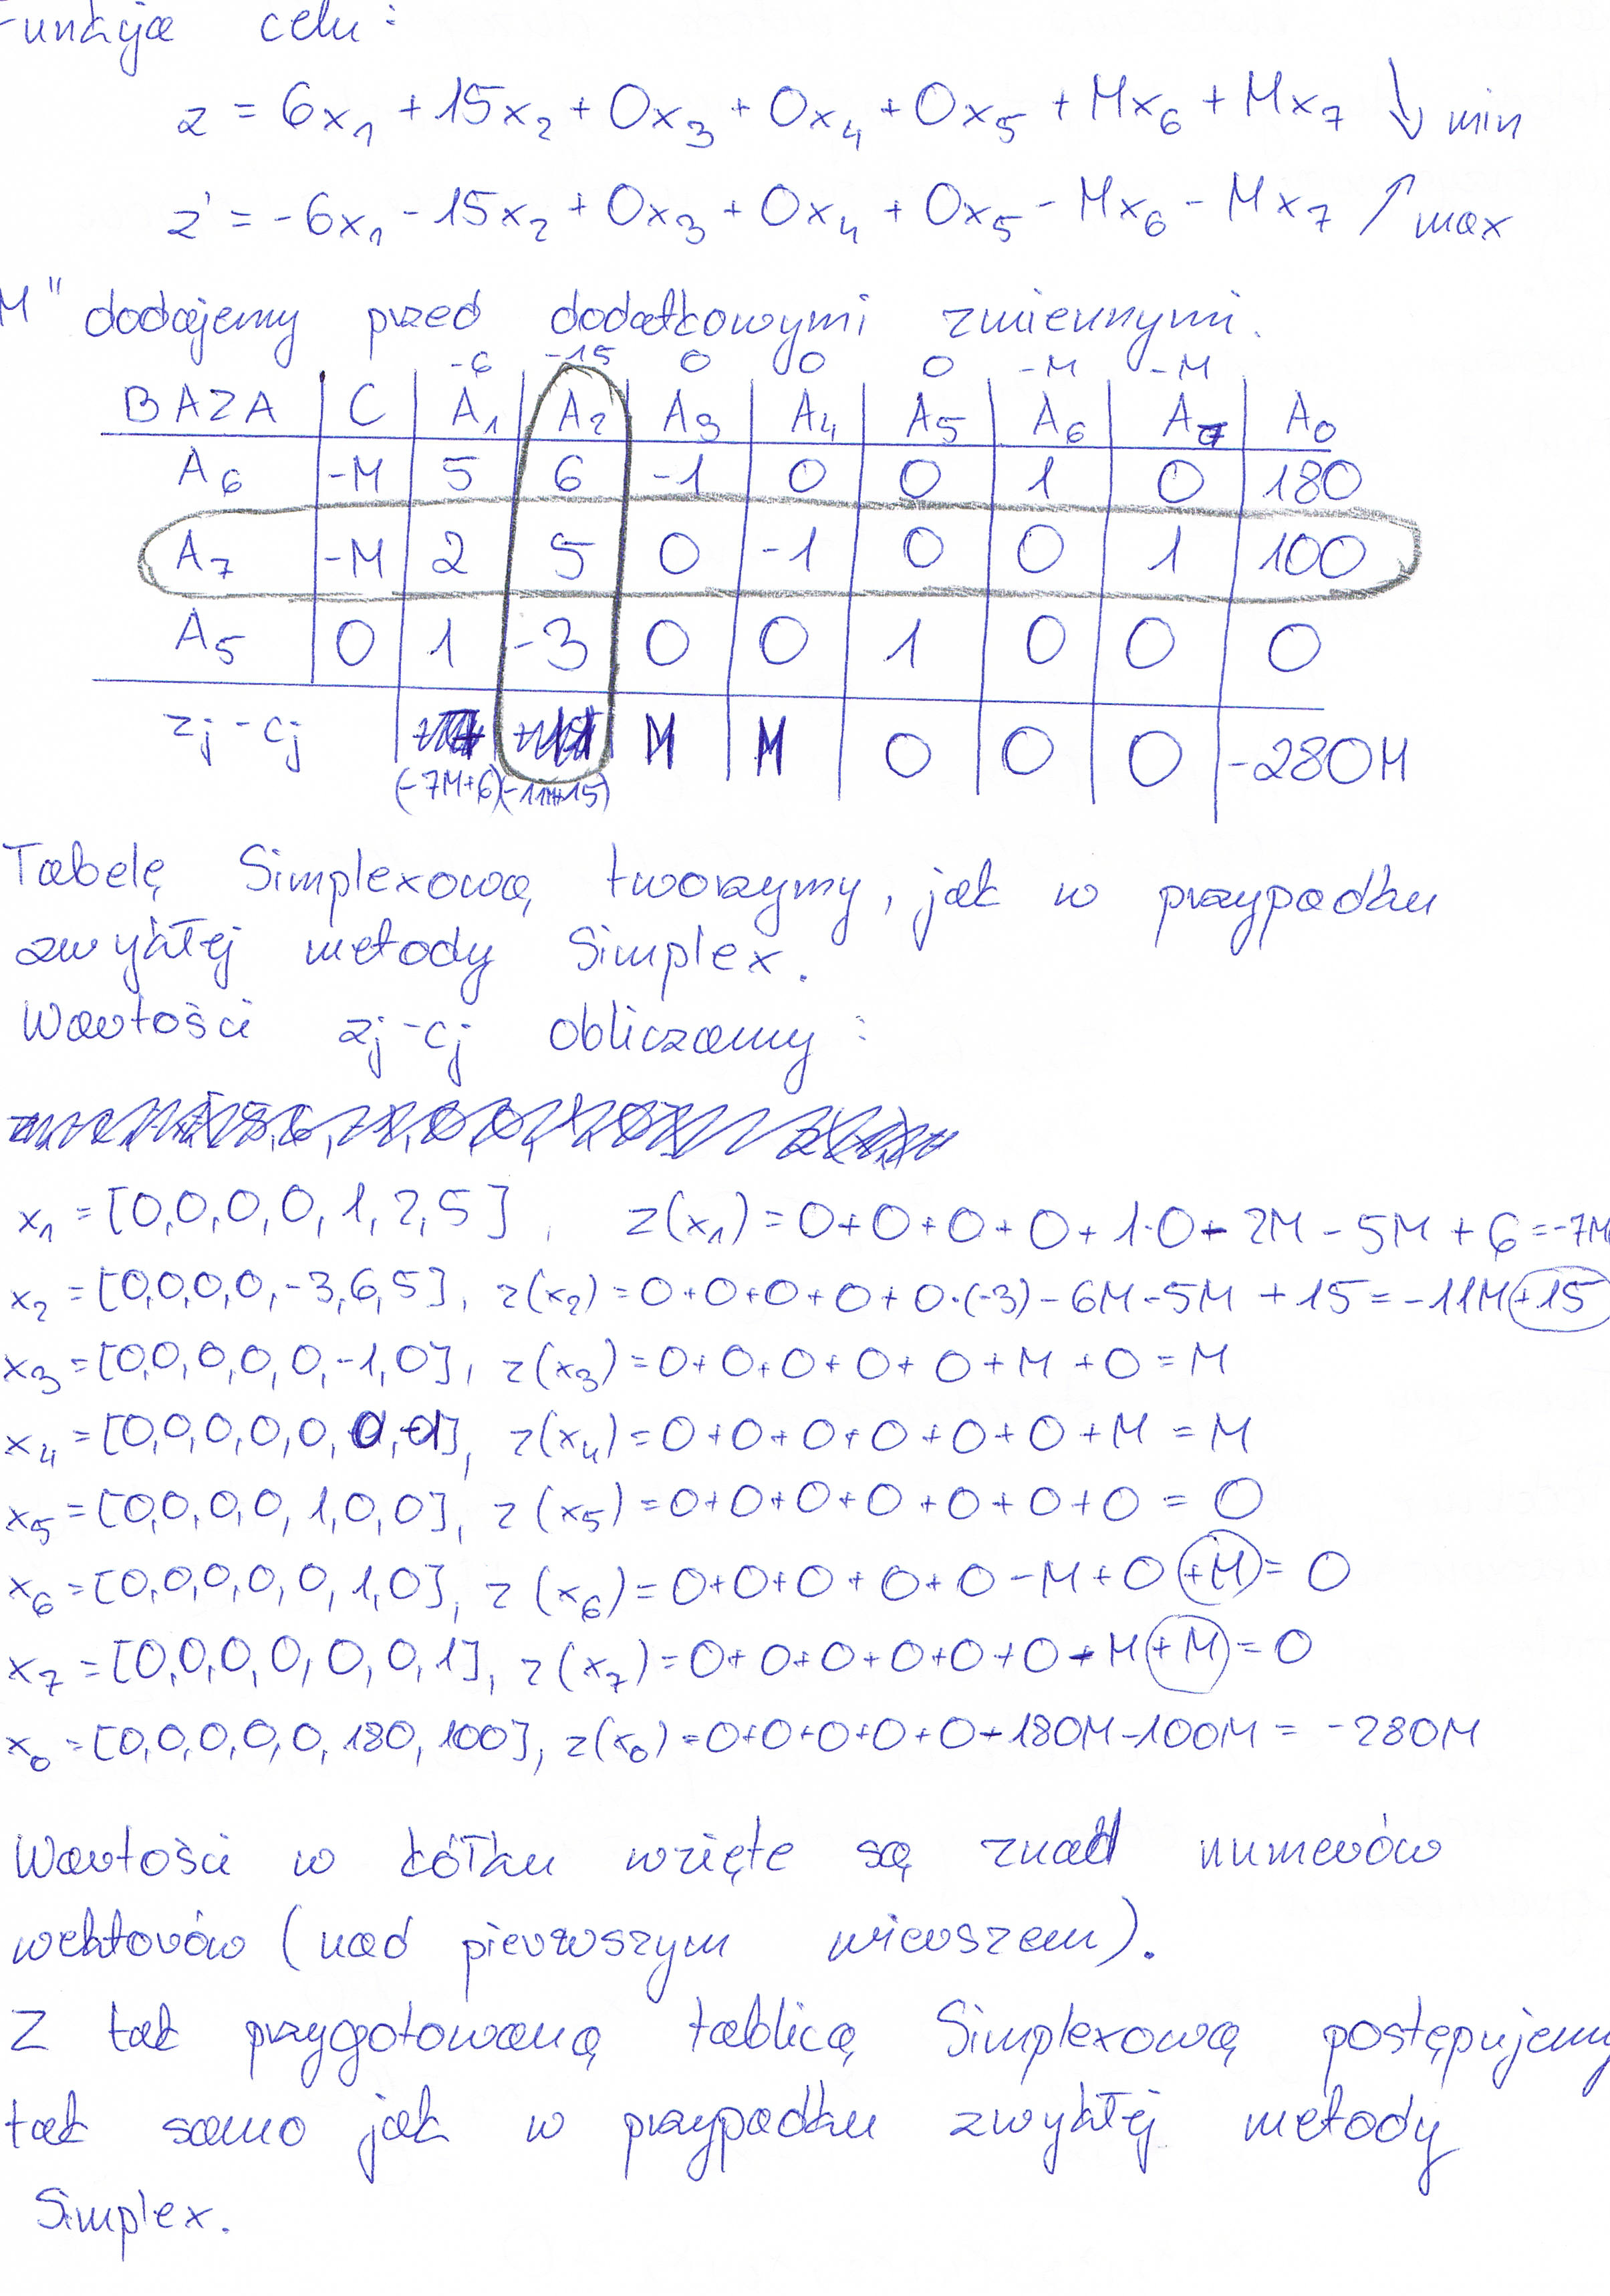 Funkcja celu:
z = 6x₁ + 15x₂ + 0x₃ + 0x₄ + 0x₅ + Mx₆ + Mx₇ ↓ min
z' = -6x₁ - 15x₂ + 0x₃ + 0x₄ + 0x₅ - Mx₆ - Mx₇ ↑ max
M" dodajemy przed dodatkowymi zmiennymi.
-6 -15 0 0 0 -M -M
BAZA C A₁ A₂ A₃ A₄ A₅ A₆ A₇ A₀
A₆ -M 5 6 -1 0 0 1 0 180
A₇ -M 2 5 0 -1 0 0 1 100
A₅ 0 1 -3 0 0 1 0 0 0
zj-cj M M 0 0 0 -280M
(-7M+6) (-11M+15)
Tabelę Simplexową tworzymy, jak w przypadku
zwykłej metody Simplex.
Wartości zj-cj obliczamy:
x₁ = [0,0,0,0,1,2,5], z(x₁) = 0+0+0+0+1·0-2M-5M+6=-7M
x₂ = [0,0,0,0,-3,6,5], z(x₂) = 0+0+0+0+0·(-3)-6M-5M+15=-11M+15
x₃ = [0,0,0,0,0,-1,0], z(x₃) = 0+0+0+0+0+M+0=M
x₄ = [0,0,0,0,0,0,-1], z(x₄) = 0+0+0+0+0+0+M=M
x₅ = [0,0,0,0,1,0,0], z(x₅) = 0+0+0+0+0+0+0=0
x₆ = [0,0,0,0,0,1,0], z(x₆) = 0+0+0+0+0-M+0+M=0
x₇ = [0,0,0,0,0,0,1], z(x₇) = 0+0+0+0+0+0-M+M=0
x₀ = [0,0,0,0,0,180,100], z(x₀) = 0+0+0+0+0-180M-100M=-280M
Wartości w kółku wzięte są znad numerów
wektorów (nad pierwszym wierszem).
Z tak przygotowaną tablicą Simplexową postępujemy
tak samo jak w przypadku zwykłej metody
Simplex.